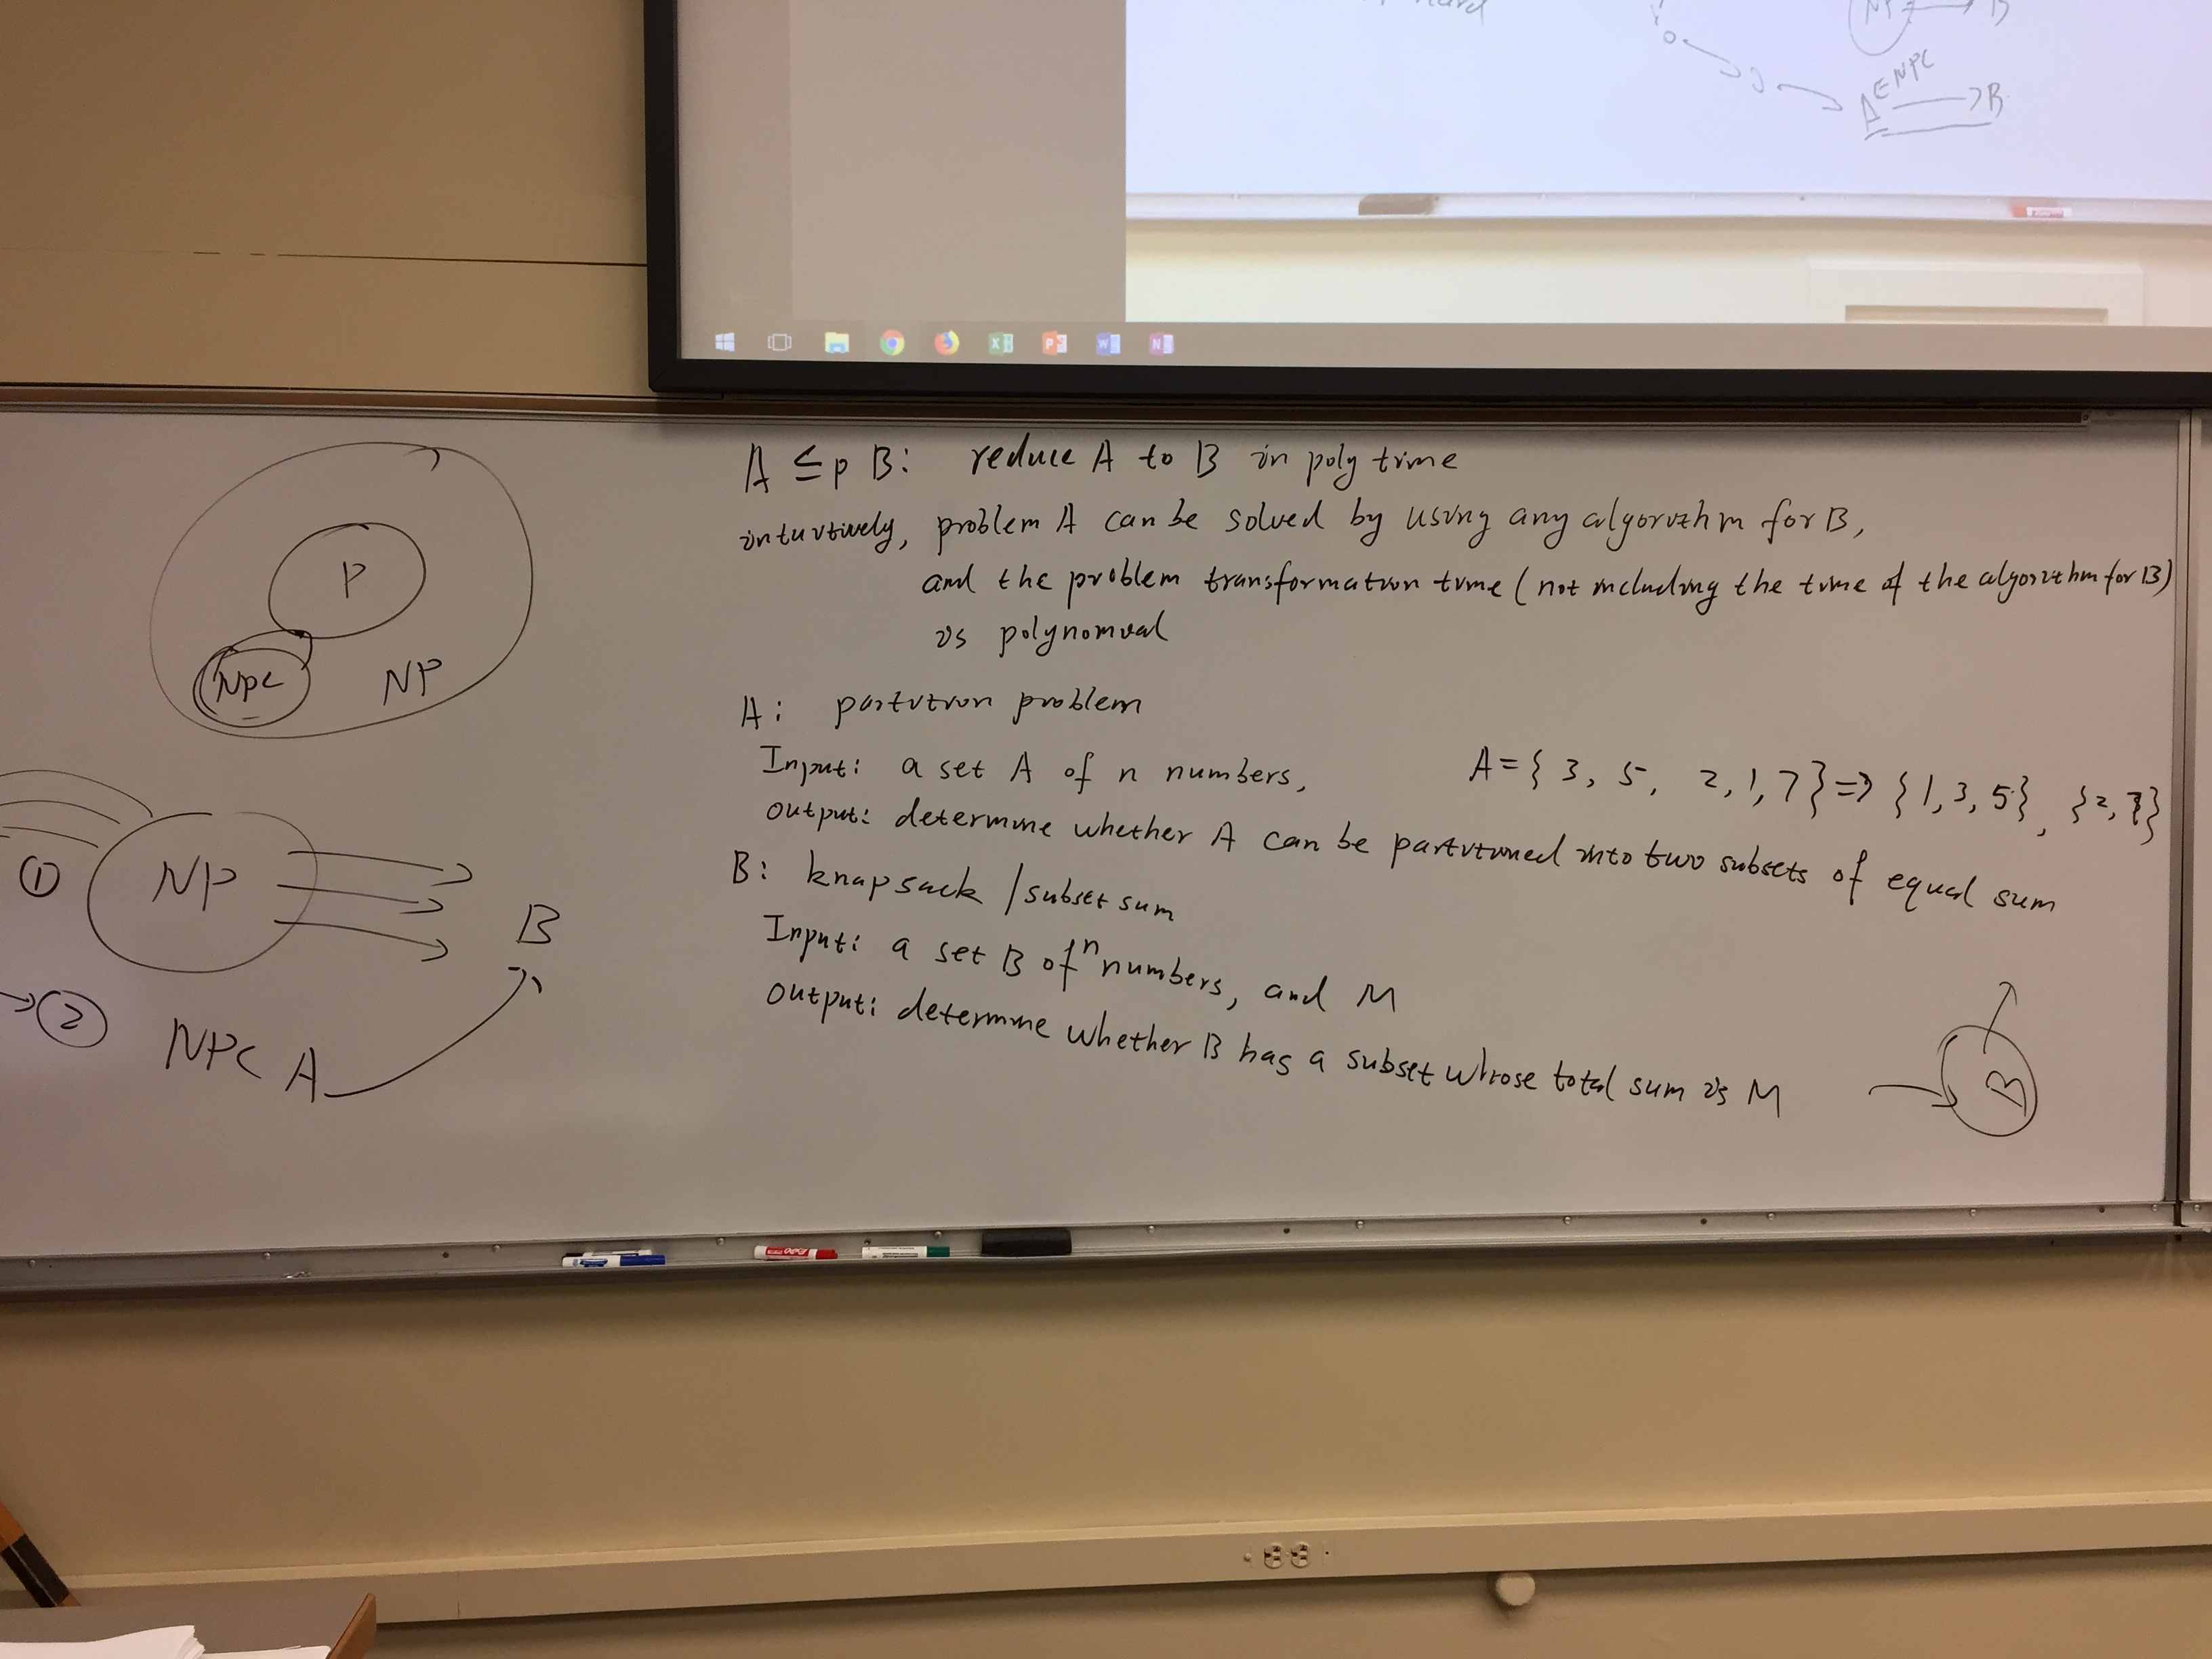 hard
NP → B
A ∈ NPC → B
A ≤p B: reduce A to B in poly time
intuitively, problem A can be solved by using any algorithm for B,
and the problem transformation time (not including the time of the algorithm for B)
is polynomial
P
NPC
NP
A: partition problem
Input: a set A of n numbers,
A = { 3, 5, 2, 1, 7 } => {1, 3, 5}, {2, 7}
output: determine whether A can be partitioned into two subsets of equal sum
B: knapsack / subset sum
Input: a set B of n numbers, and M
output: determine whether B has a subset whose total sum is M
① NP
B
→ ② NPC A
B